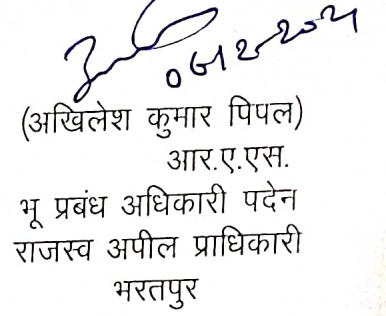 (अखिलेश कुमार पिपल)
आर.ए.एस.
भू प्रबंध अधिकारी पदेन
राजस्व अपील प्राधिकारी
भरतपुर